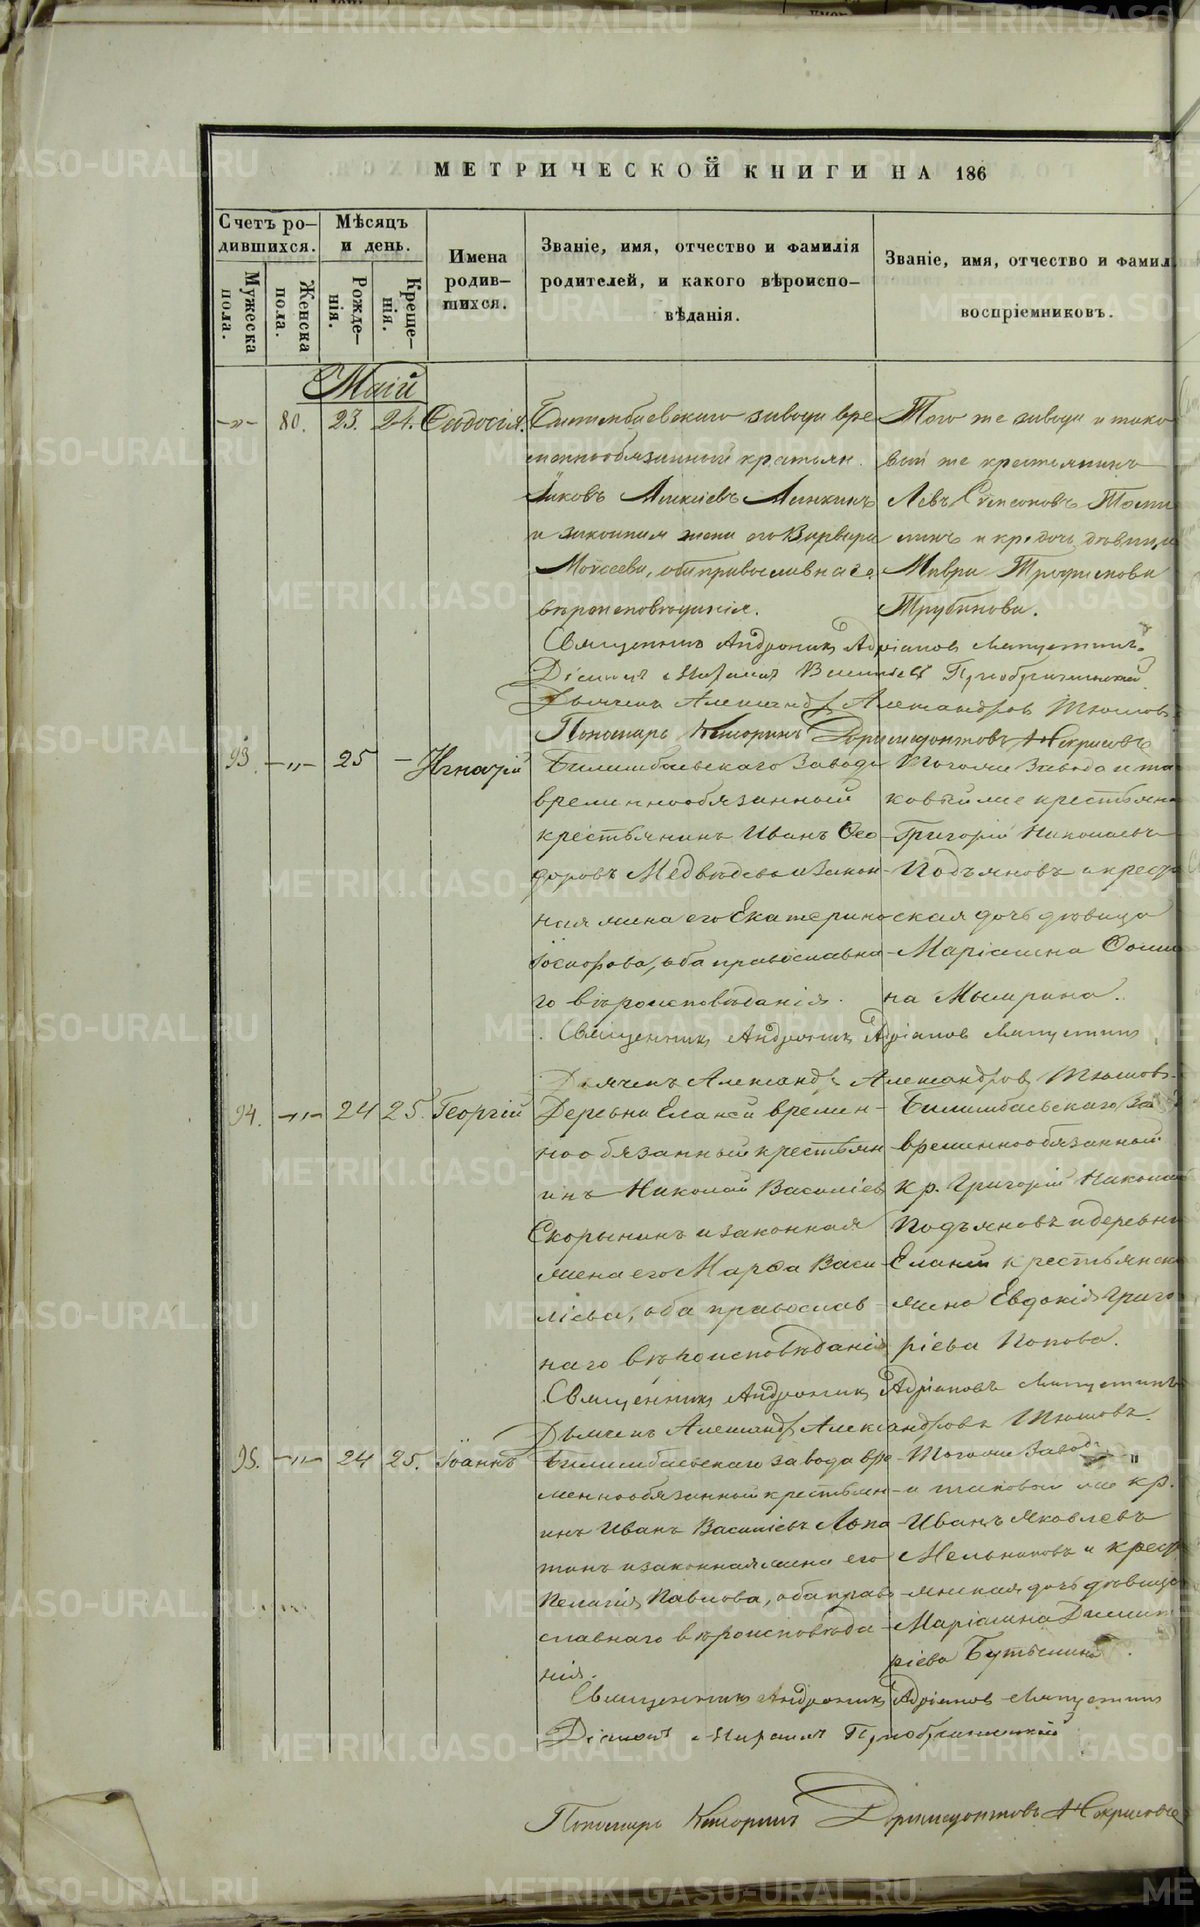 МЕТРИЧЕСКОЙ КНИГИ НА 186
Счетъ ро-
дившихся.
Мѣсяцъ
и день.
Мужеска
пола.
Женска
пола.
Рожде-
нія.
Креще-
нія.
Имена
родив-
шихся.
Званіе, имя, отчество и фамилія
родителей, и какого вѣроиспо-
вѣданія.
Званіе, имя, отчество и фамил
воспріемниковъ.
Маій
-„- 80. 23. 24. Ѳеодосія.
Билимбаевскаго завода вре
меннообязанный крестьян.
Яковъ
и законная жена его Варвара
Моѵсеева, оба православнаго
вѣроисповѣданія.
Того же завода и тако
вый же крестьянинъ
Левъ
и кр. дочь дѣвица
Мавра Трофимова
Трубинова.
Священникъ Андроникъ Адріановъ
Діаконъ Василіевъ Преображенскій
Дьячекъ Александръ Александровъ Тюшовъ
Пономарь Доримедонтовъ Некрасовъ
93. -„- 25 - Игнатій
Билимбаевскаго завода
временнообязанный
крестьянинъ Иванъ Ѳео
доровъ Медвѣдевъ и закон
ная жена его Екатерина
Іосифова, оба православна
го вѣроисповѣданія.
Того же завода и та
ковый же крестьяни
Григорій Николаевъ
Подъяновъ и крест
ская дочь дѣвица
Маріамна Ѳоми
на Мымрина.
Священникъ Андроникъ Адріановъ
Дьячекъ Александръ Александровъ Тюшовъ.
94. -„- 24 25. Георгій
Деревни Елани времен-
нообязанный крестьян
инъ Николай Василіев
Скорынинъ и законная
жена его Марѳа Васи
ліева, оба православ
наго вѣроисповѣданія
Билимбаевскаго за
временнообязанный
кр. Григорій Никола
Подъяновъ и деревни
Елани крестьянска
жена Евдокія Григо
ріева Попова.
Священникъ Андроникъ Адріановъ
Дьячекъ Александръ Александровъ Тюшовъ.
95. -„- 24 25. Іоаннъ
Билимбаевскаго завода вре
меннообязанный крестьян
инъ Иванъ Василіевъ Лопа
тинъ и законная жена его
Пелагія Павлова, оба право
славнаго вѣроисповѣда
нія.
Того же завода
и таковой же кр.
Иванъ Яковлевъ
Мельниковъ и крест
янская дочь дѣвица
Маріамна Димит
ріева
Священникъ Андроникъ Адріановъ
Діаконъ Преображенскій
Пономарь Доримедонтовъ Некрасовъ
METRIKI.GASO-URAL.RU